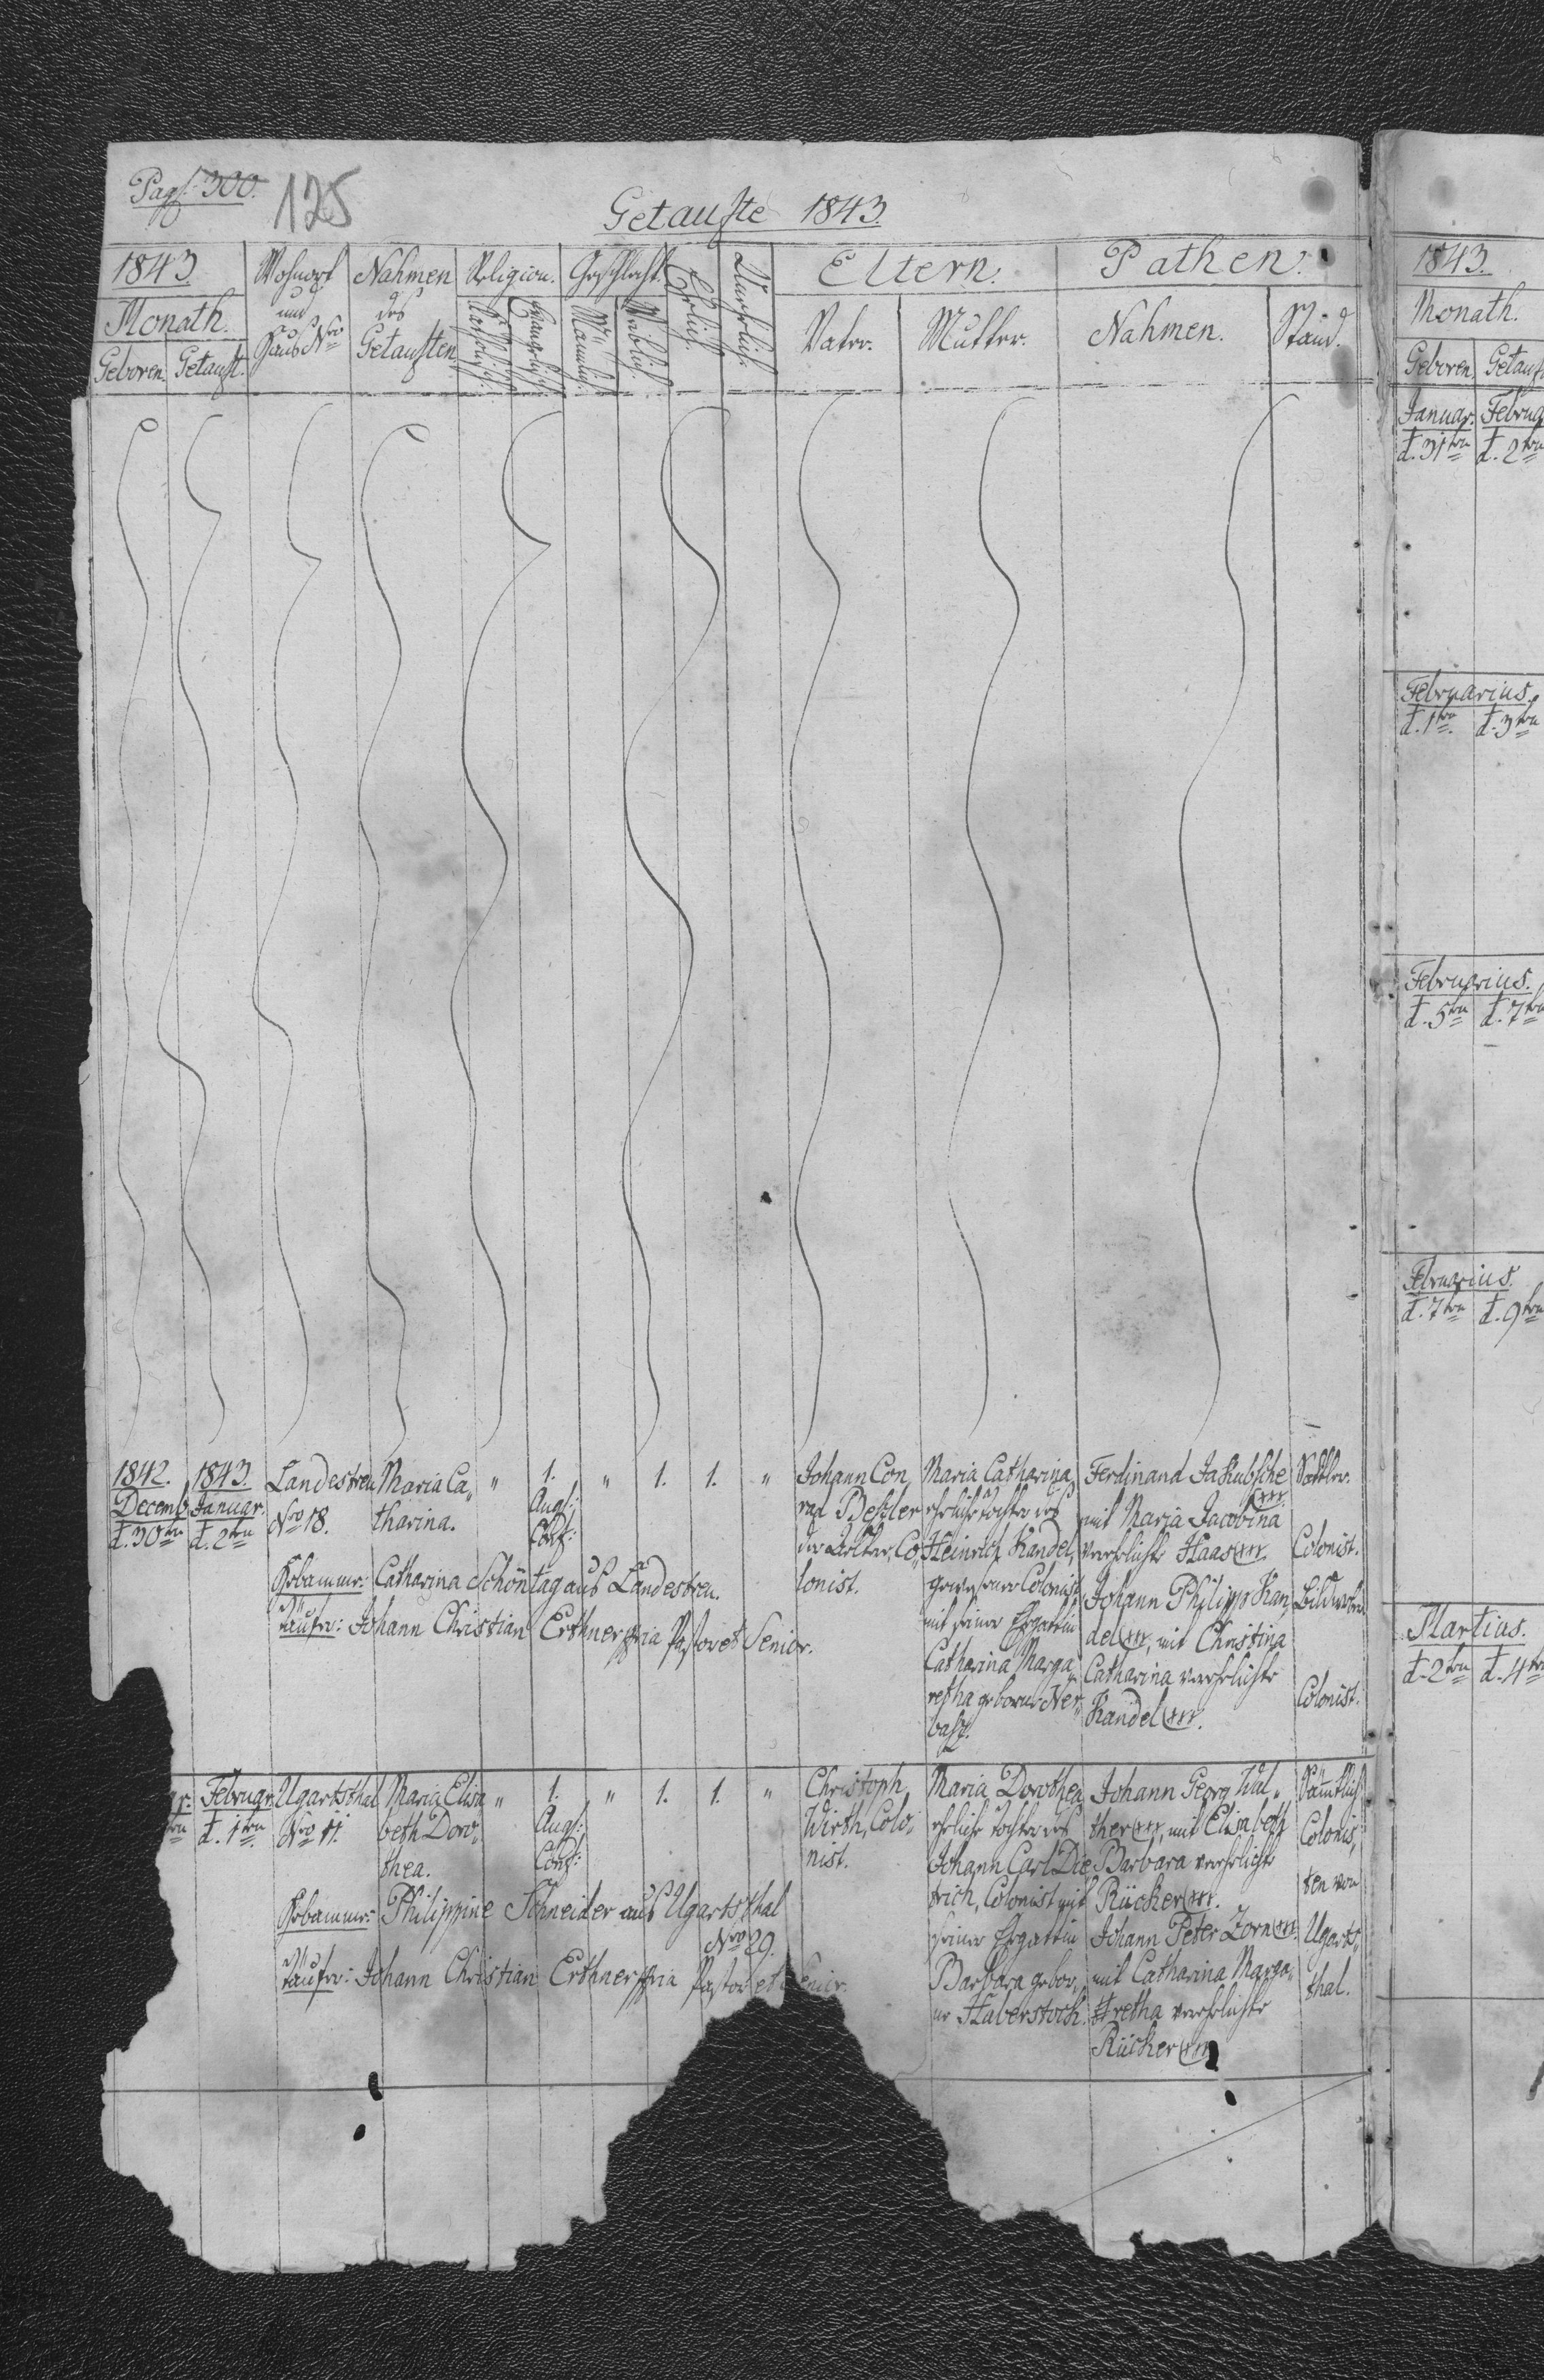 Pag: 300.
125
Getaufte 1843.
1843.
Monath.
Geboren. Getauft.
Wohnort
und
Haus Nro
Nahmen
des
Getauften
Religion.
Katholisch.
Evangelisch.
Geschlecht.
Männlich.
Weiblich.
Ehelich.
Unehelich.
Eltern.
Vater.
Mutter.
Pathen.
Nahmen.
Stand.
1842.
Decemb.
d. 30ten
1843.
Januar.
d. 2ten
Landestreu
Nro 18.
Maria Ca„
tharina.
"
1.
Augs:
Conf:
"
1.
1.
"
Johann Con„
rad Beßler
der Aeltere, Co„
lonist.
Maria Catharina
eheliche Tochter des
Heinrich Kandel,
gewesener Colonist
mit seiner Ehgattin
Catharina Marga„
retha geborne Ner„
baß.
Ferdinand Jakubsche
mit Maria Jacobina
verehelichte Haas
Johann Philipp Kan„
del, mit Christina
Catharina verehelichte
Kandel.
Sattler.
Colonist.
Colonist.
Hebamme: Catharina Schöntag aus Landestreu.
Täufer: Johann Christian Erthner mpria Pastor et Senior.
r.
ten
Februar
d. 1ten
Ugartsthal
Nro 11.
Maria Elisa„
beth Doro„
thea.
"
1.
Augs:
Conf:
"
1.
1.
"
Christoph
Wirth, Colo„
nist.
Maria Dorothea
eheliche Tochter des
Johann Carl Die„
trich, Colonist mit
seiner Ehgattin
Barbara gebor„
ne Haberstock.
Johann Georg Wal„
ther, mit Elisabeth
Barbara verehelichte
Rücker.
Johann Peter Zorn
mit Catharina Marga„
retha verehelichte
Rücker
Sämtlich
Colonis„
ten von
Ugarts„
thal.
Hebamme: Philippine Schneider aus Ugartsthal
Nro 29.
Täufer: Johann Christian Erthner mpria Pastor et Senior.
1843.
Monath.
Geboren. Getauf
Januar. Februa
d. 31ten d. 2ten
Februarius.
d. 1ten d. 3ten
Februarius.
d. 5ten d. 7ten
Februarius.
d. 7ten d. 9ten
Martius.
d. 2ten d. 4ten